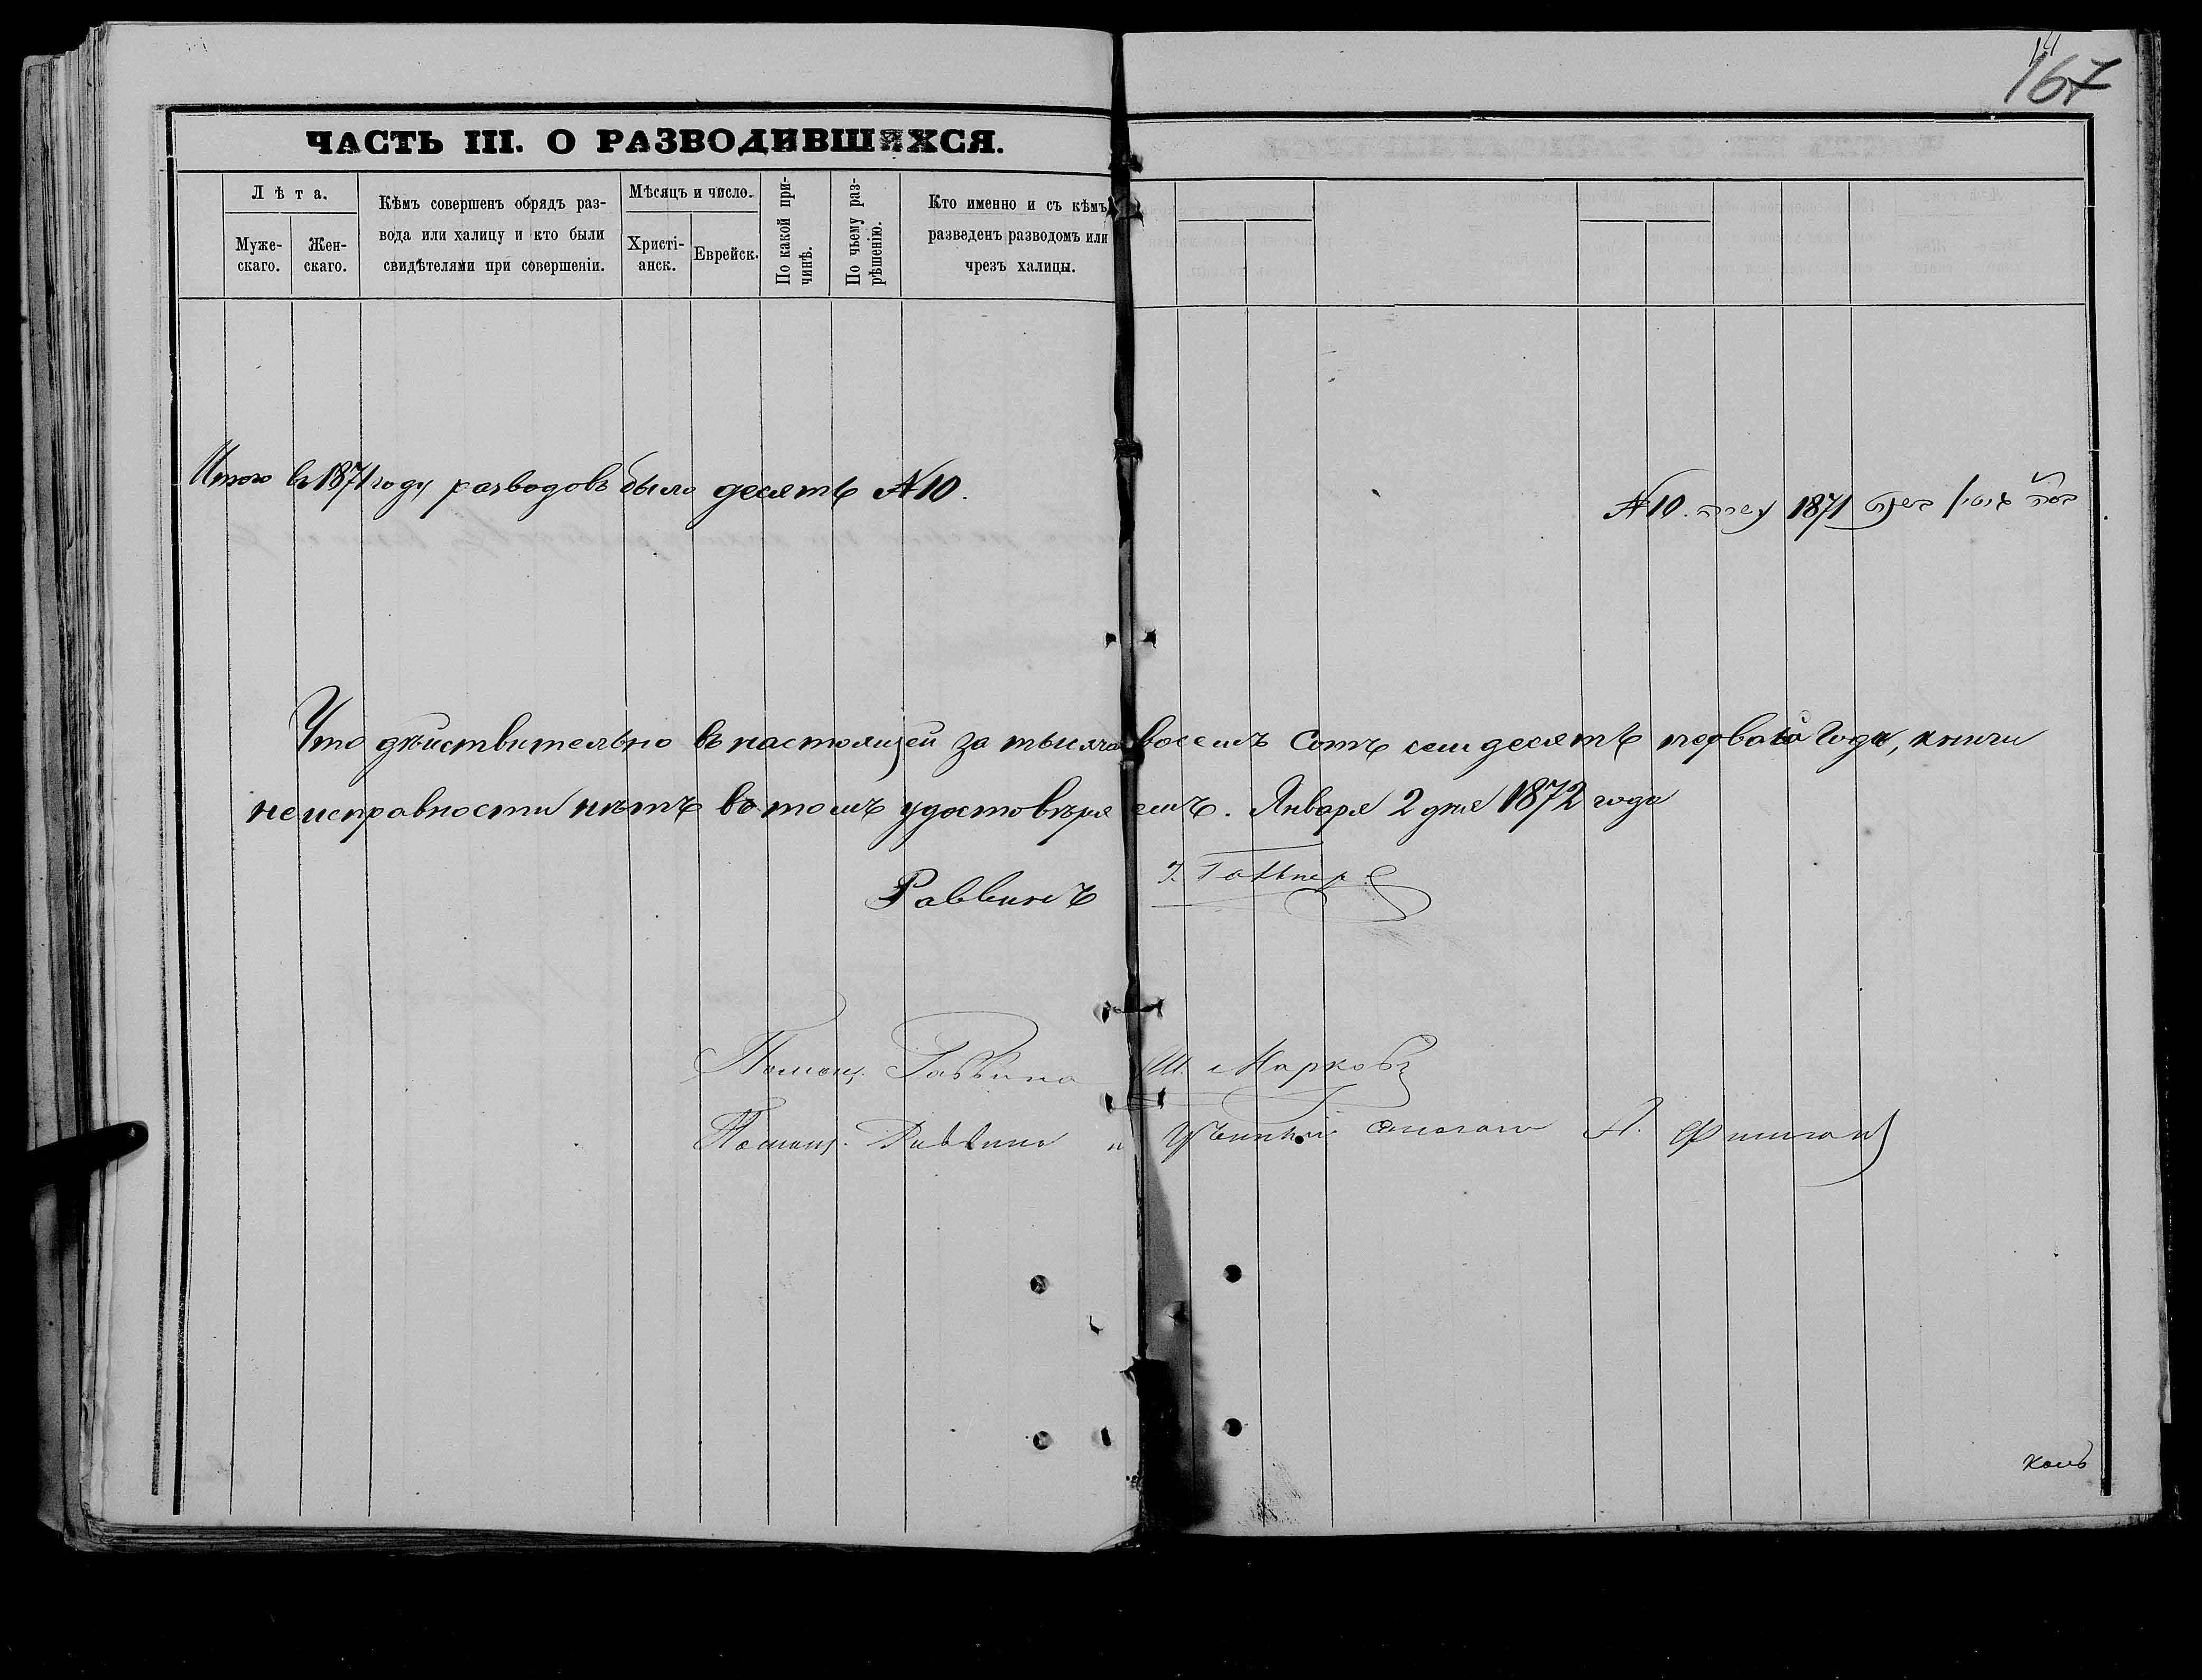 167
ЧАСТЬ III. О РАЗВОДИВШИХСЯ.
Лѣта.
Муже-
скаго.
Жен-
скаго.
Кѣмъ совершенъ обрядъ раз-
вода или халицу и кто были
свидѣтелями при совершеніи.
Мѣсяцъ и число.
Христі-
анск.
Еврейск.
По какой при-
чинѣ.
По чьему раз-
рѣшенію.
Кто именно и съ кѣмъ
разведенъ разводомъ или
чрезъ халицы.
Итого въ 1871 году разводовъ было десять №10.
№10. 1871
Что дѣйствительно въ настоящей за тысяча восемь сотъ семидесятъ первой года, книги
неисправности нѣтъ въ томъ удостовѣряемъ. Января 2 дня 1872 года
Раввинъ
Помощ. Раввина Ш. Марковъ
Помощ. Раввина и